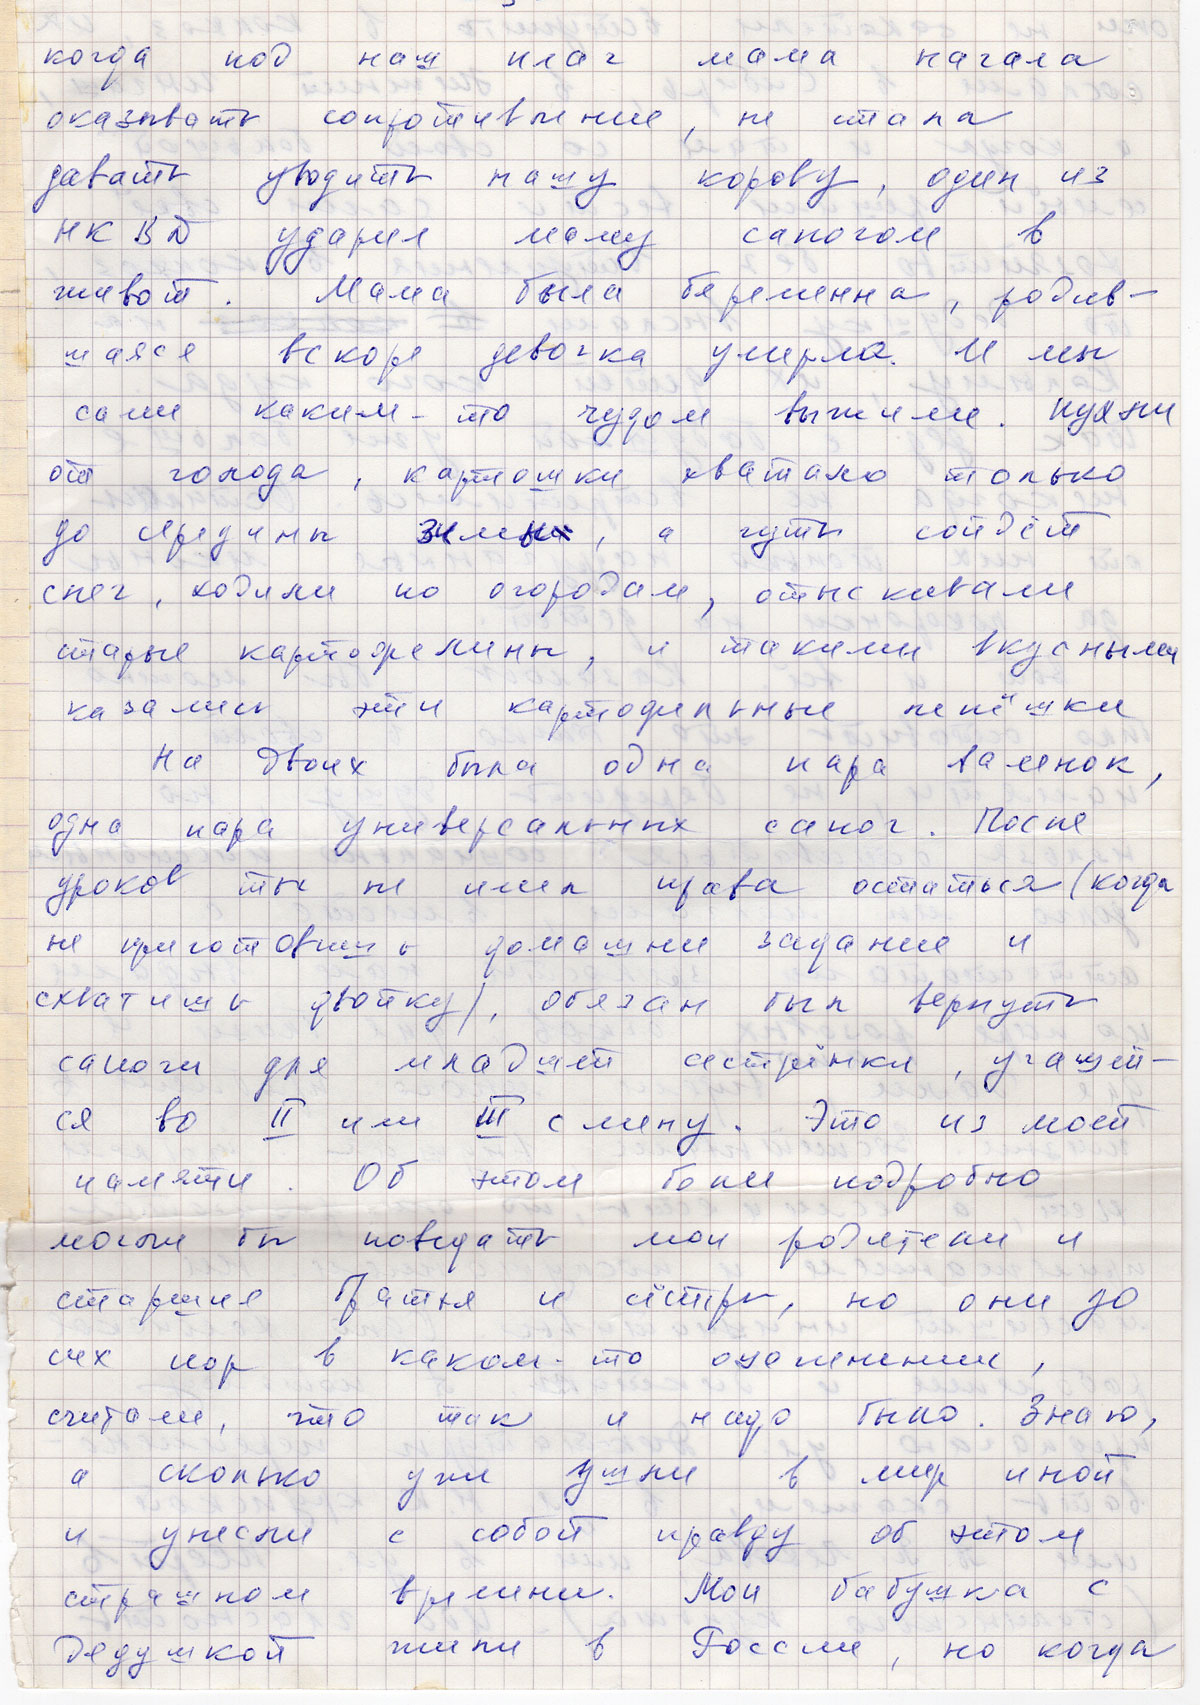 когда под наш плач мама начала
оказывать сопротивление, не стала
давать уводить нашу корову, один из
НКВД ударил маму сапогом в
живот. Мама была беременна, родив-
шаяся вскоре девочка умерла. И мы
сами каким-то чудом выжили. Пухли
от голода, картошки хватало только
до середины зимы, а чуть сойдёт
снег, ходили по огородам, отыскивали
старые картофелины, и такими вкусными
казались эти картофельные лепёшки
На двоих была одна пара валенок,
одна пара универсальных сапог. После
уроков ты не имел права остаться (когда
не приготовишь домашни задание и
схватишь двойку), обязан был вернуть
сапоги для младшей сестрёнки, учащей-
ся во II или III смену. Это из моей
памяти. Об этом более подробно
могли бы поведать мои родители и
старшие братья и сёстры, но они до
сих пор в каком-то оцепенении,
считали, что так и надо было. Знаю,
а сколько уже ушли в мир иной
и унесли с собой правду об этом
страшном времени. Мои бабушка с
дедушкой жили в России, но когда